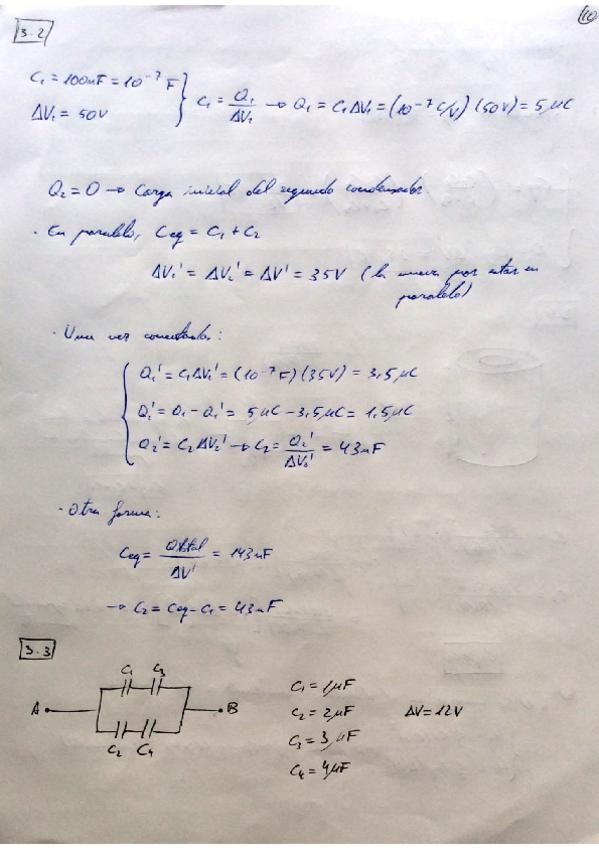 10
3.2
C₁ = 100nF = 10⁻⁷ F
ΔV₁ = 50V
C₁ = Q₁/ΔV₁ → Q₁ = C₁ΔV₁ = (10⁻⁷ C/V) (50V) = 5 μC
Q₂ = 0 → Carga inicial del segundo condensador.
· En paralelo, Ceq = C₁ + C₂
ΔV₁' = ΔV₂' = ΔV' = 35V (la nueva por estar en
paralelo)
· Una vez conectados:
Q₁' = C₁ΔV₁' = (10⁻⁷ F) (35V) = 3,5 μC
Q₂' = Q₁ - Q₁' = 5 μC - 3,5 μC = 1,5 μC
Q₂' = C₂ΔV₂' → C₂ = Q₂'/ΔV₂' = 43nF
· Otra forma:
Ceq = Qtotal/ΔV' = 143nF
→ C₂ = Ceq - C₁ = 43nF
3.3
C₁ C₃
A B
C₂ C₄
C₁ = 1μF
C₂ = 2μF ΔV = 12V
C₃ = 3μF
C₄ = 4μF